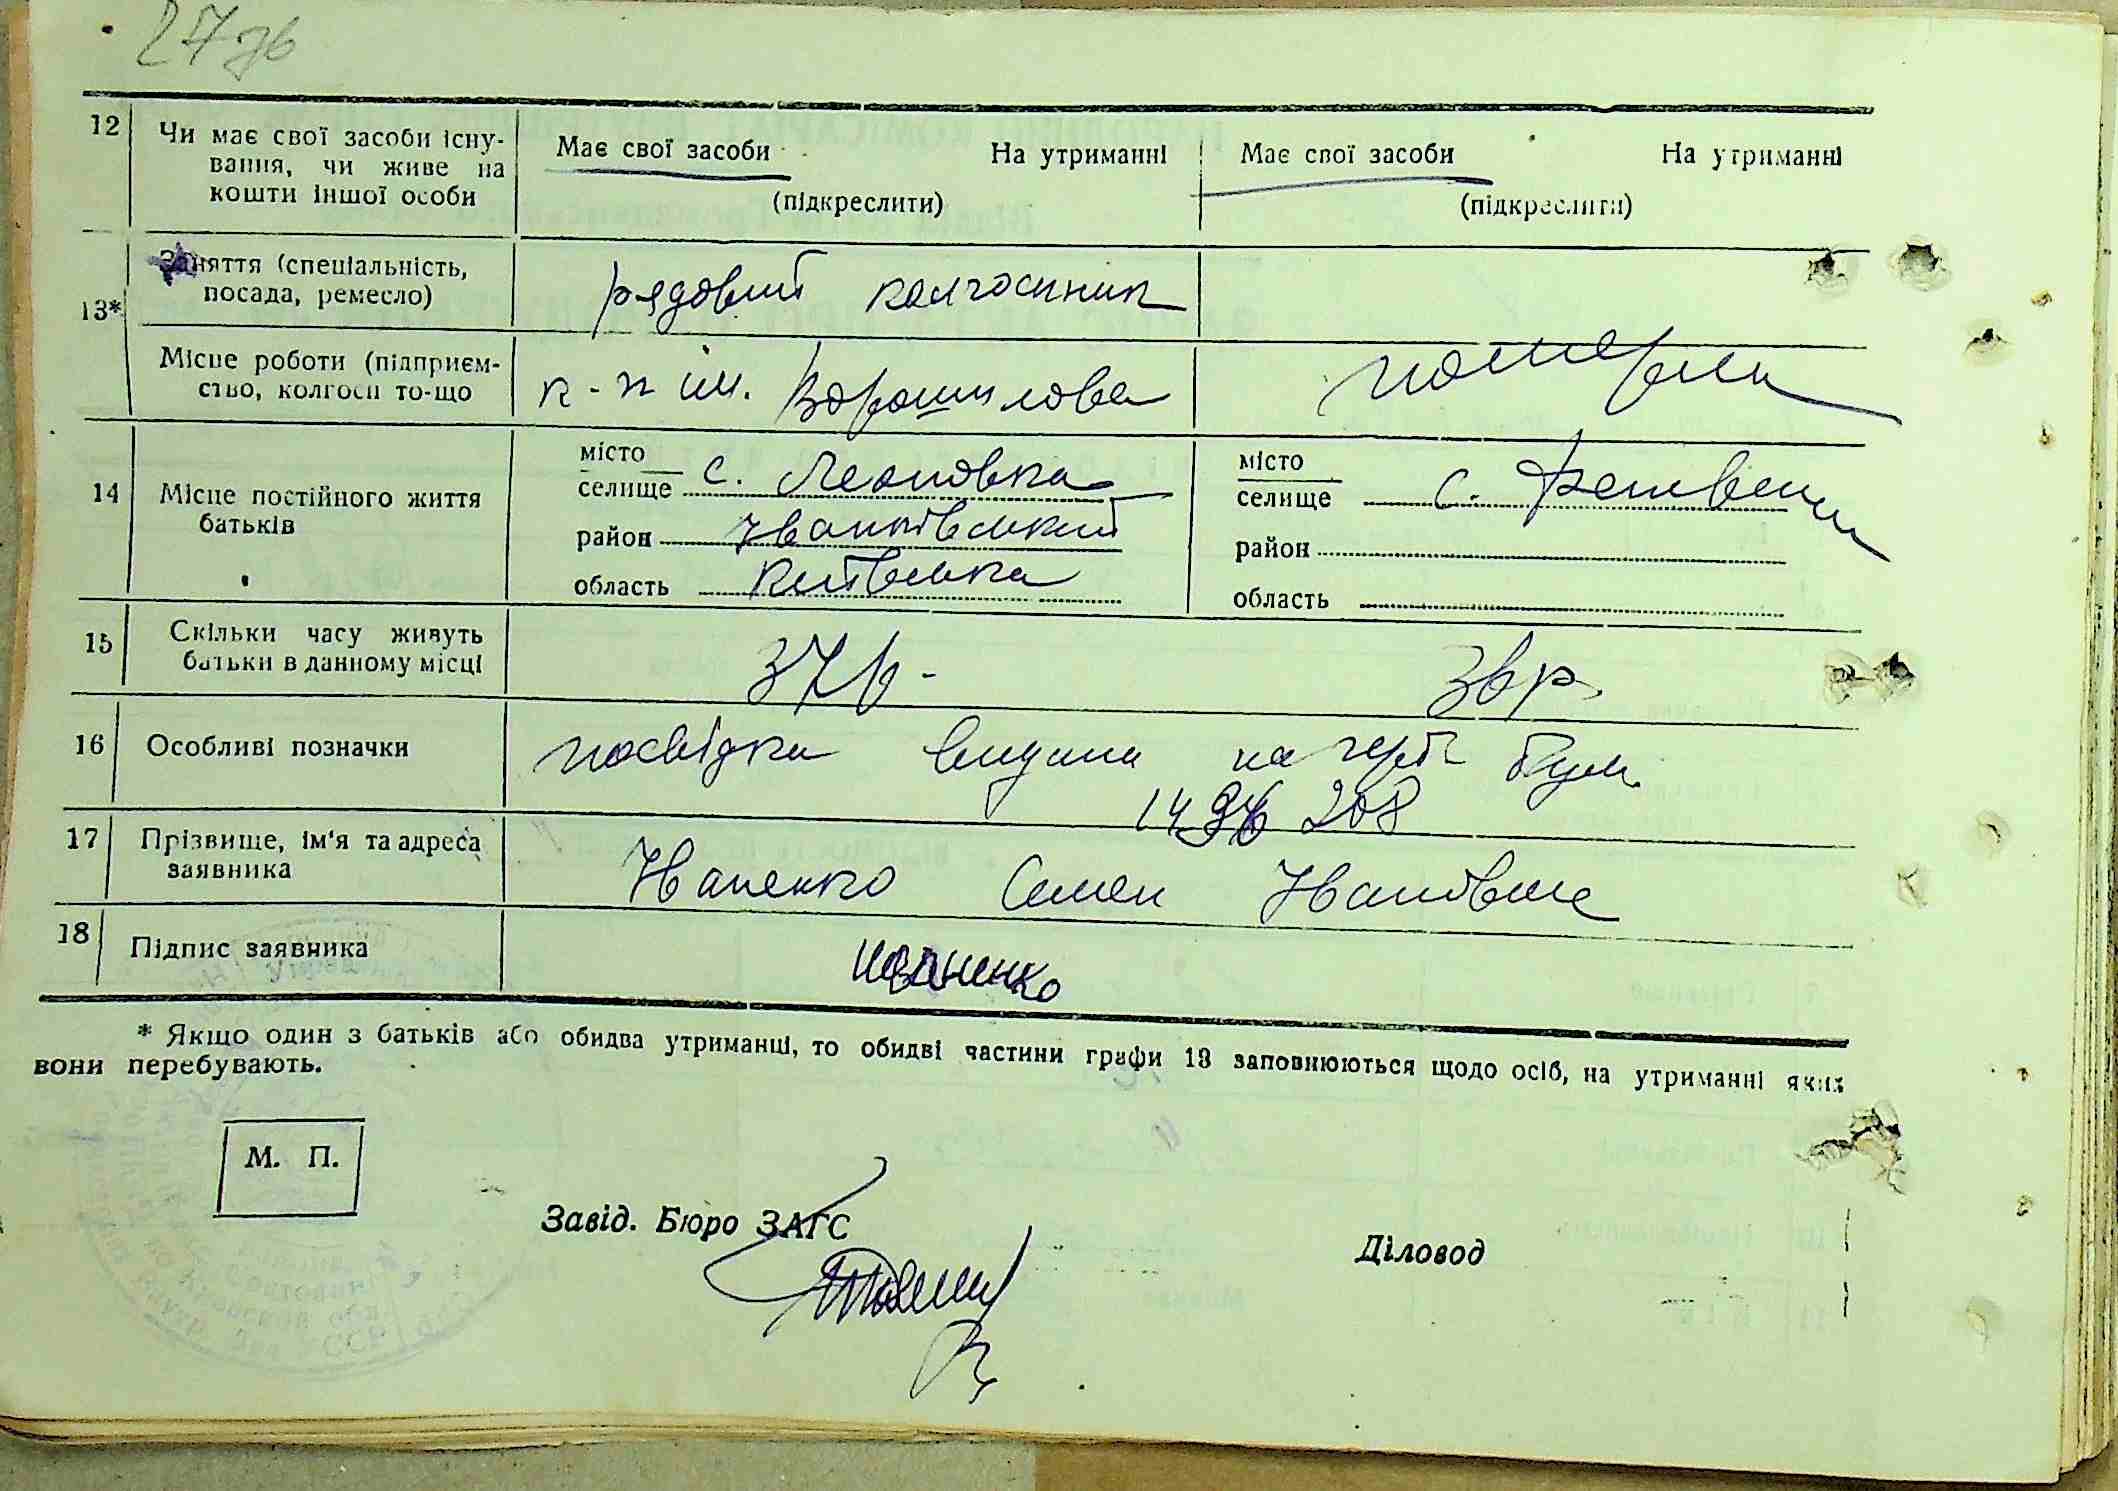 27 зв
12 Чи має свої засоби існу-
вання, чи живе на
кошти іншої особи
Має свої засоби На утриманні
(підкреслити)
Має свої засоби На утриманні
(підкреслити)
13* Заняття (спеціальність,
посада, ремесло)
рядовий колгоспник
Місце роботи (підприєм-
ство, колгосп то-що
к-п їм. Ворошилова
14 Місце постійного життя
батьків
місто
селище с. Леоновка
район Іванківський
область Київська
місто
селище с.
район
область
15 Скільки часу живуть
батьки в данному місці
37 р. -
16 Особливі позначки
посвідка видана на герб бум.
208
17 Прізвище, ім'я та адреса
заявника
Іваненко Семен Іванович
18 Підпис заявника
Иваненко
* Якщо один з батьків або обидва утриманці, то обидві частини графи 13 заповнюються щодо осіб, на утриманні яких
вони перебувають.
М. П.
Завід. Бюро ЗАГС
Діловод